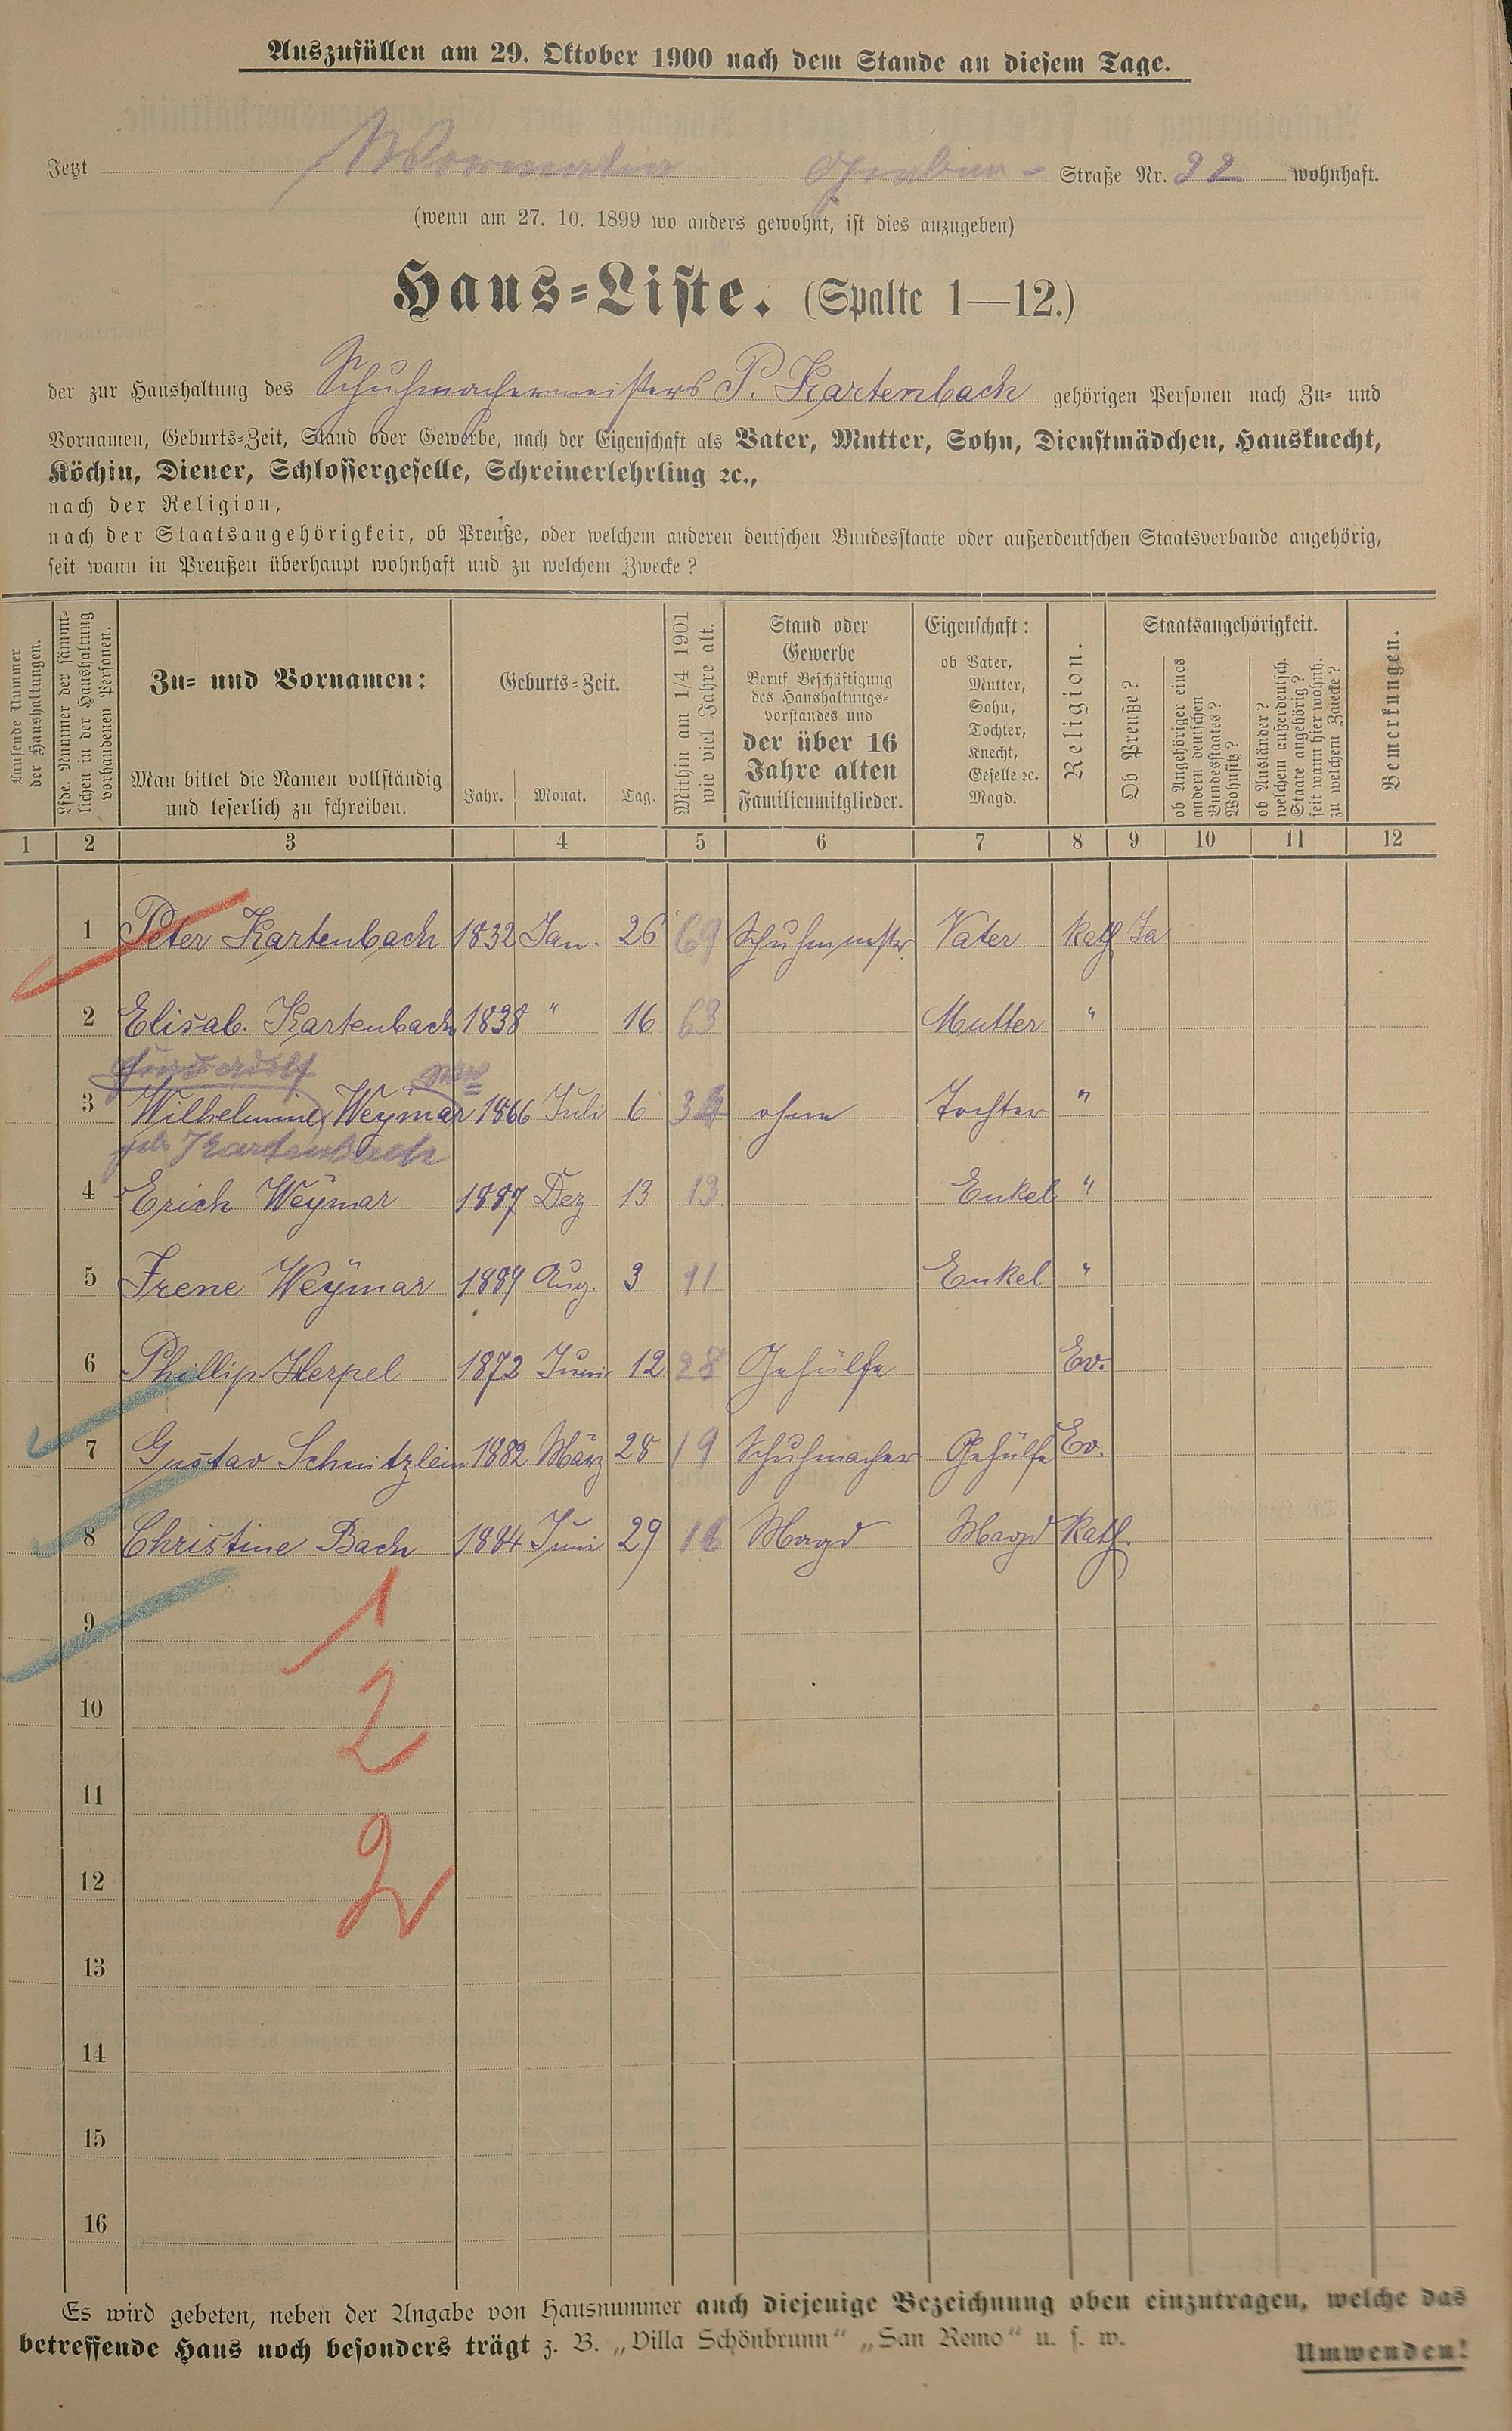 Auszufüllen am 29. Oktober 1900 nach dem Stande an diesem Tage.
Jetzt Graben- Straße Nr. 32 wohnhaft.
(wenn am 27. 10. 1899 wo anders gewohnt, ist dies anzugeben)
Haus-Liste. (Spalte 1—12.)
der zur Haushaltung des Schuhmachermeisters P. Kartenbach gehörigen Personen nach Zu- und
Vornamen, Geburts-Zeit, Stand oder Gewerbe, nach der Eigenschaft als Vater, Mutter, Sohn, Dienstmädchen, Hausknecht,
Köchin, Diener, Schlossergeselle, Schreinerlehrling ꝛc.,
nach der Religion,
nach der Staatsangehörigkeit, ob Preuße, oder welchem anderen deutschen Bundesstaate oder außerdeutschen Staatsverbande angehörig,
seit wann in Preußen überhaupt wohnhaft und zu welchem Zwecke?
Laufende Nummer
der Haushaltungen.
Lfde. Nummer der sämmt-
lichen in der Haushaltung
vorhandenen Personen.
Zu- und Vornamen:
Man bittet die Namen vollständig
und leserlich zu schreiben.
Geburts-Zeit.
Jahr. Monat. Tag.
Mithin am 1/4 1901
wie viel Jahre alt.
Stand oder
Gewerbe
Beruf Beschäftigung
des Haushaltungs-
vorstandes und
der über 16
Jahre alten
Familienmitglieder.
Eigenschaft:
ob Vater,
Mutter,
Sohn,
Tochter,
Knecht,
Geselle ꝛc.
Magd.
Religion.
Staatsangehörigkeit.
Ob Preuße?
ob Angehöriger eines
andern deutschen
Bundesstaates?
Wohnsitz?
ob Ausländer?
welchem außerdeutsch.
Staate angehörig?
seit wann hier wohnh.
zu welchem Zwecke?
Bemerkungen.
1 2 3 4 5 6 7 8 9 10 11 12
1 Peter Kartenbach 1832 Jan. 26 69 Schuhmmstr. Vater kath Ja
2 Elisab. Kartenbach 1838 " 16 63 Mutter "
3 Wilhelmine Weÿmar 1866 Juli 6 34 ohne Tochter "
geb Kartenbach
4 Erich Weÿmar 1887 Dez 13 13 Enkel "
5 Irene Weÿmar 1889 Aug. 3 11 Enkel "
6 Phillip Herpel 1872 Juni 12 28 Gehülfe Ev.
7 Gustav Schnitzlein 1882 März 28 19 Schuhmacher Gehülfe Ev.
8 Christine Bach 1884 Juni 29 16 Magd Magd Kath.
9
1
2
10
11
2
12
13
14
15
16
Es wird gebeten, neben der Angabe von Hausnummer auch diejenige Bezeichnung oben einzutragen, welche das
betreffende Haus noch besonders trägt z. B. „Villa Schönbrunn“ „San Remo“ u. s. w.
Umwenden!